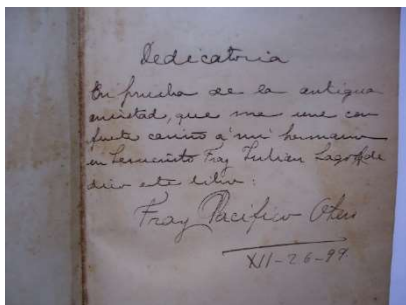 Dedicatoria
En prueba de la antigua
amistad, que me une con
fuerte cariño á mi hermano
en Fray Julian Lagos de
dico este libro:
Fray Pacifico Otero
XII-26-99